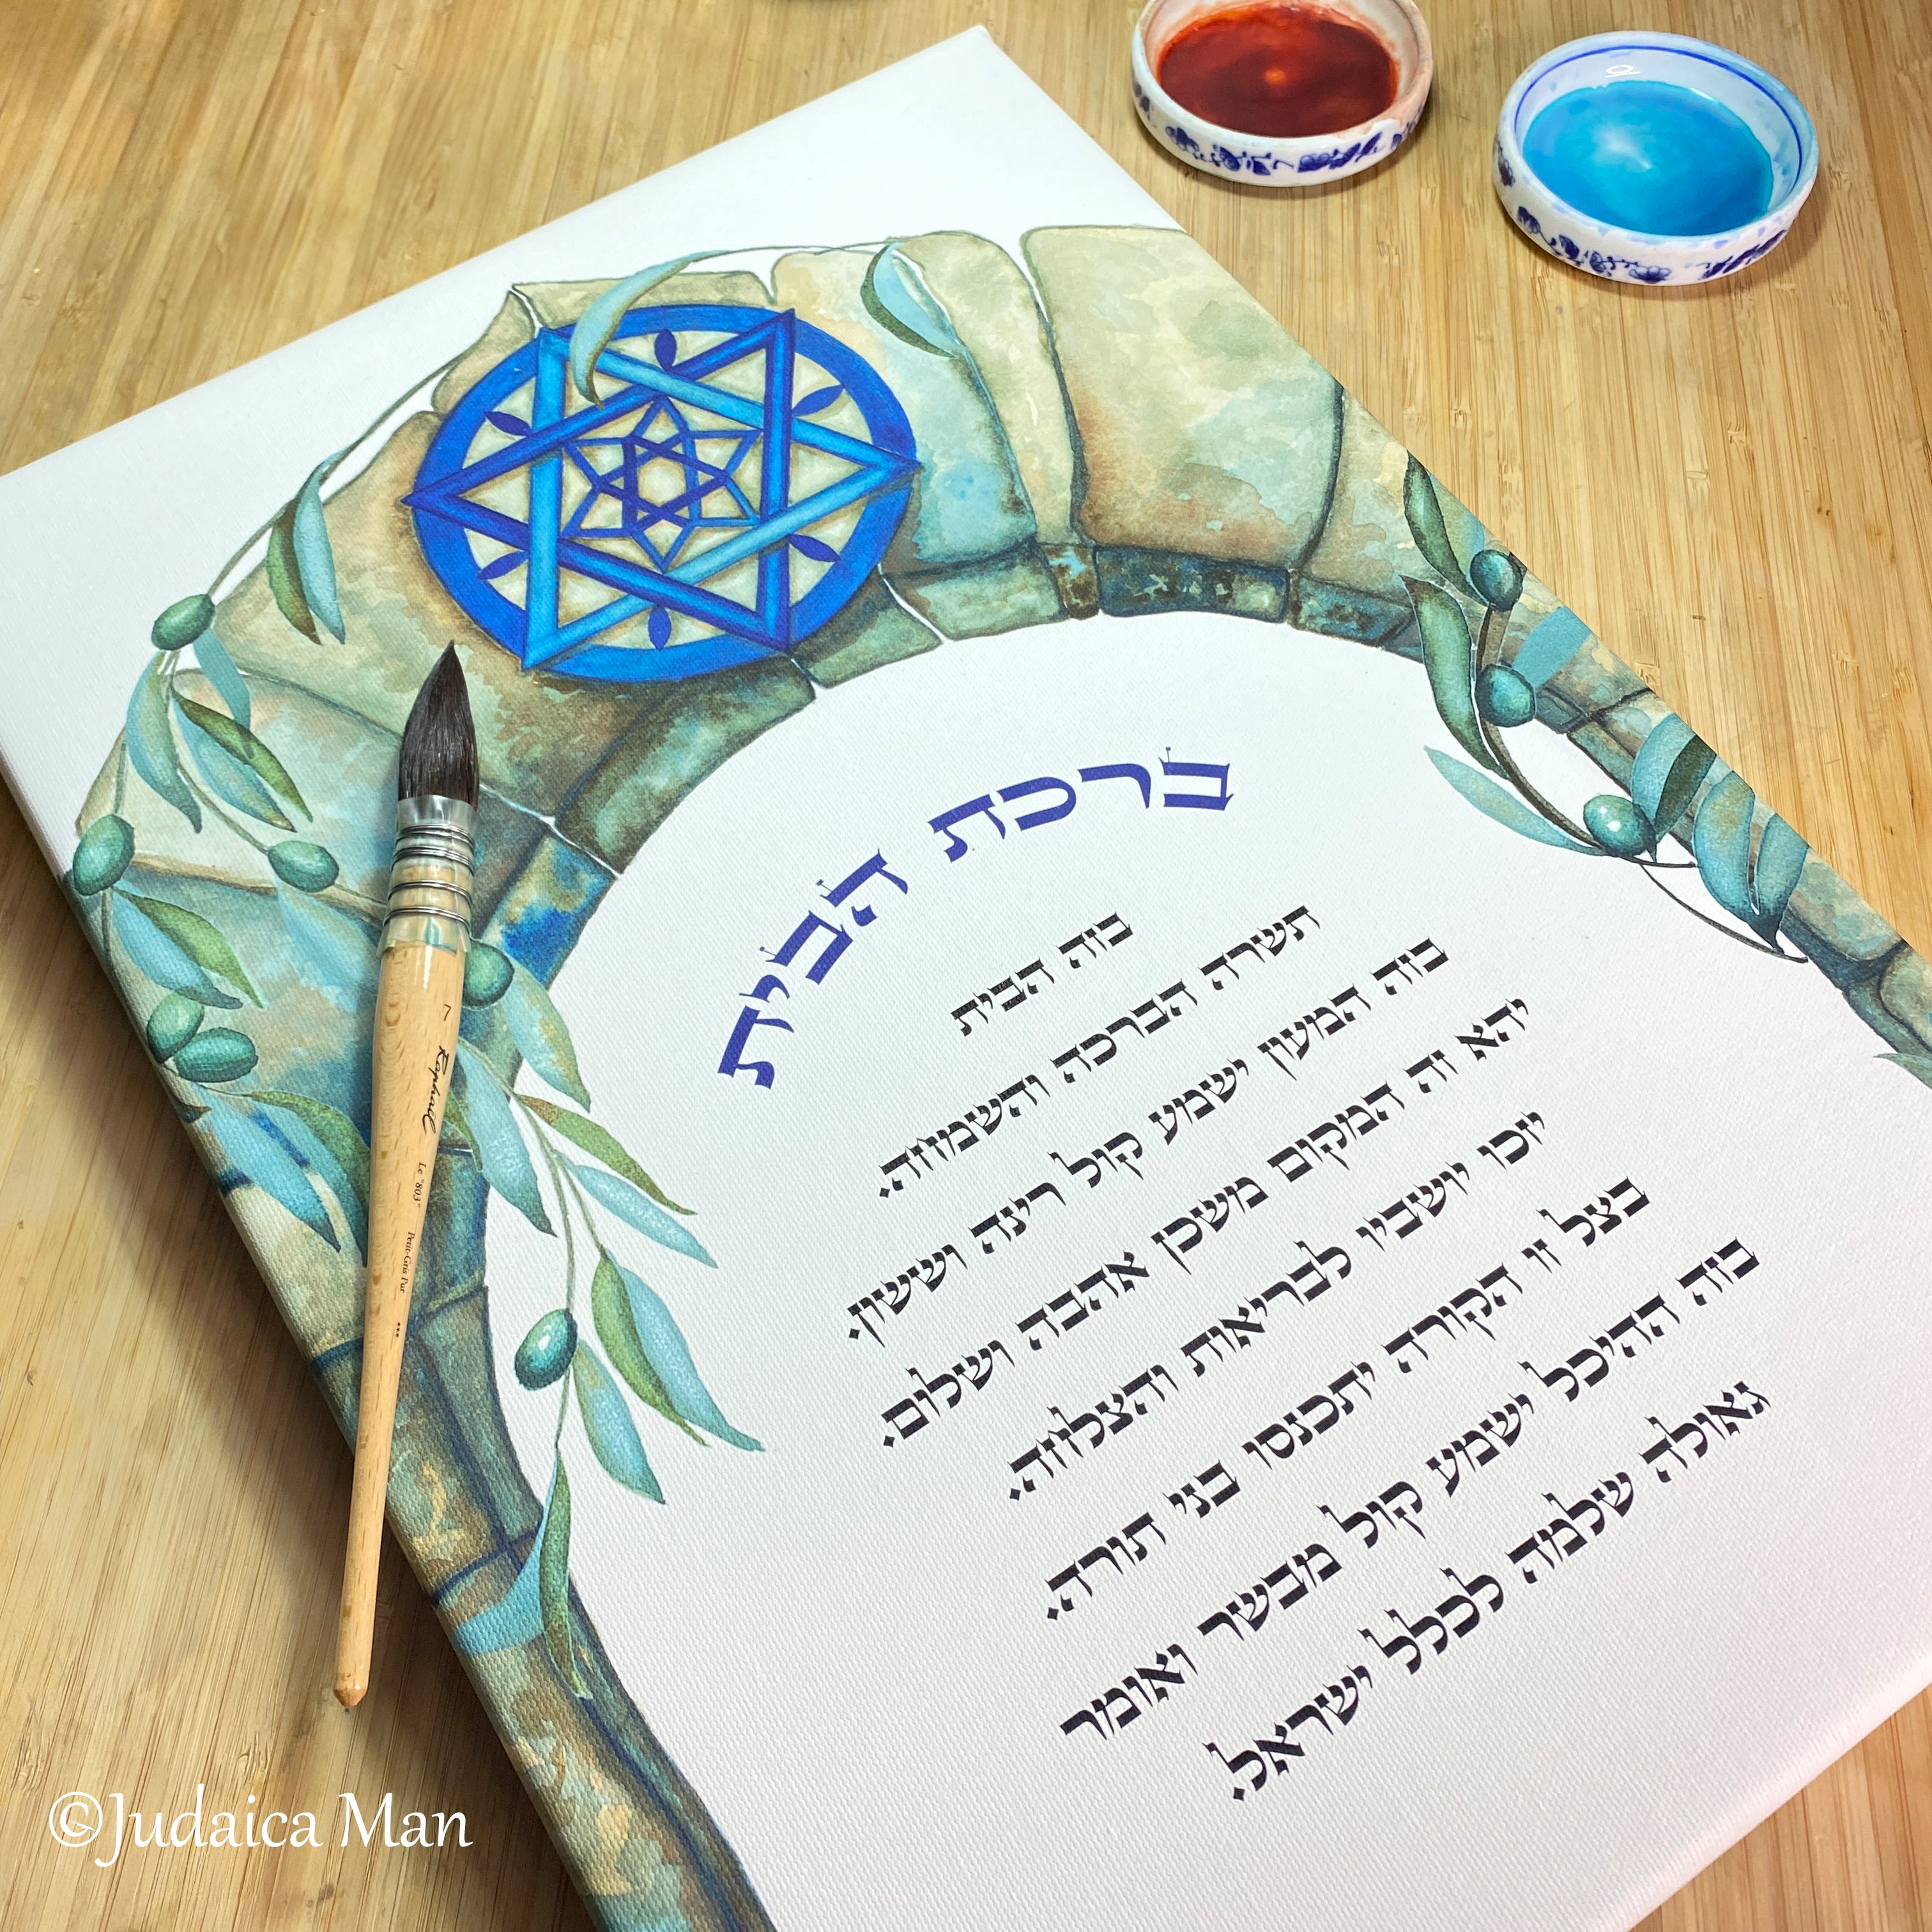 ברכת הבית
בזה הבית
תשרה הברכה והשמחה.
בזה המעון ישמע קול רינה וששון.
יהא זה המקום משכן אהבה ושלום.
יזכו יושביו לבריאות והצלחה.
בצל זו הקורה יתכנסו בני תורה.
בזה ההיכל ישמע קול מבשר ואומר
גאולה שלמה לכלל ישראל.
7 Raphaël Le "803" Petit-Gris Pur ***
©Judaica Man